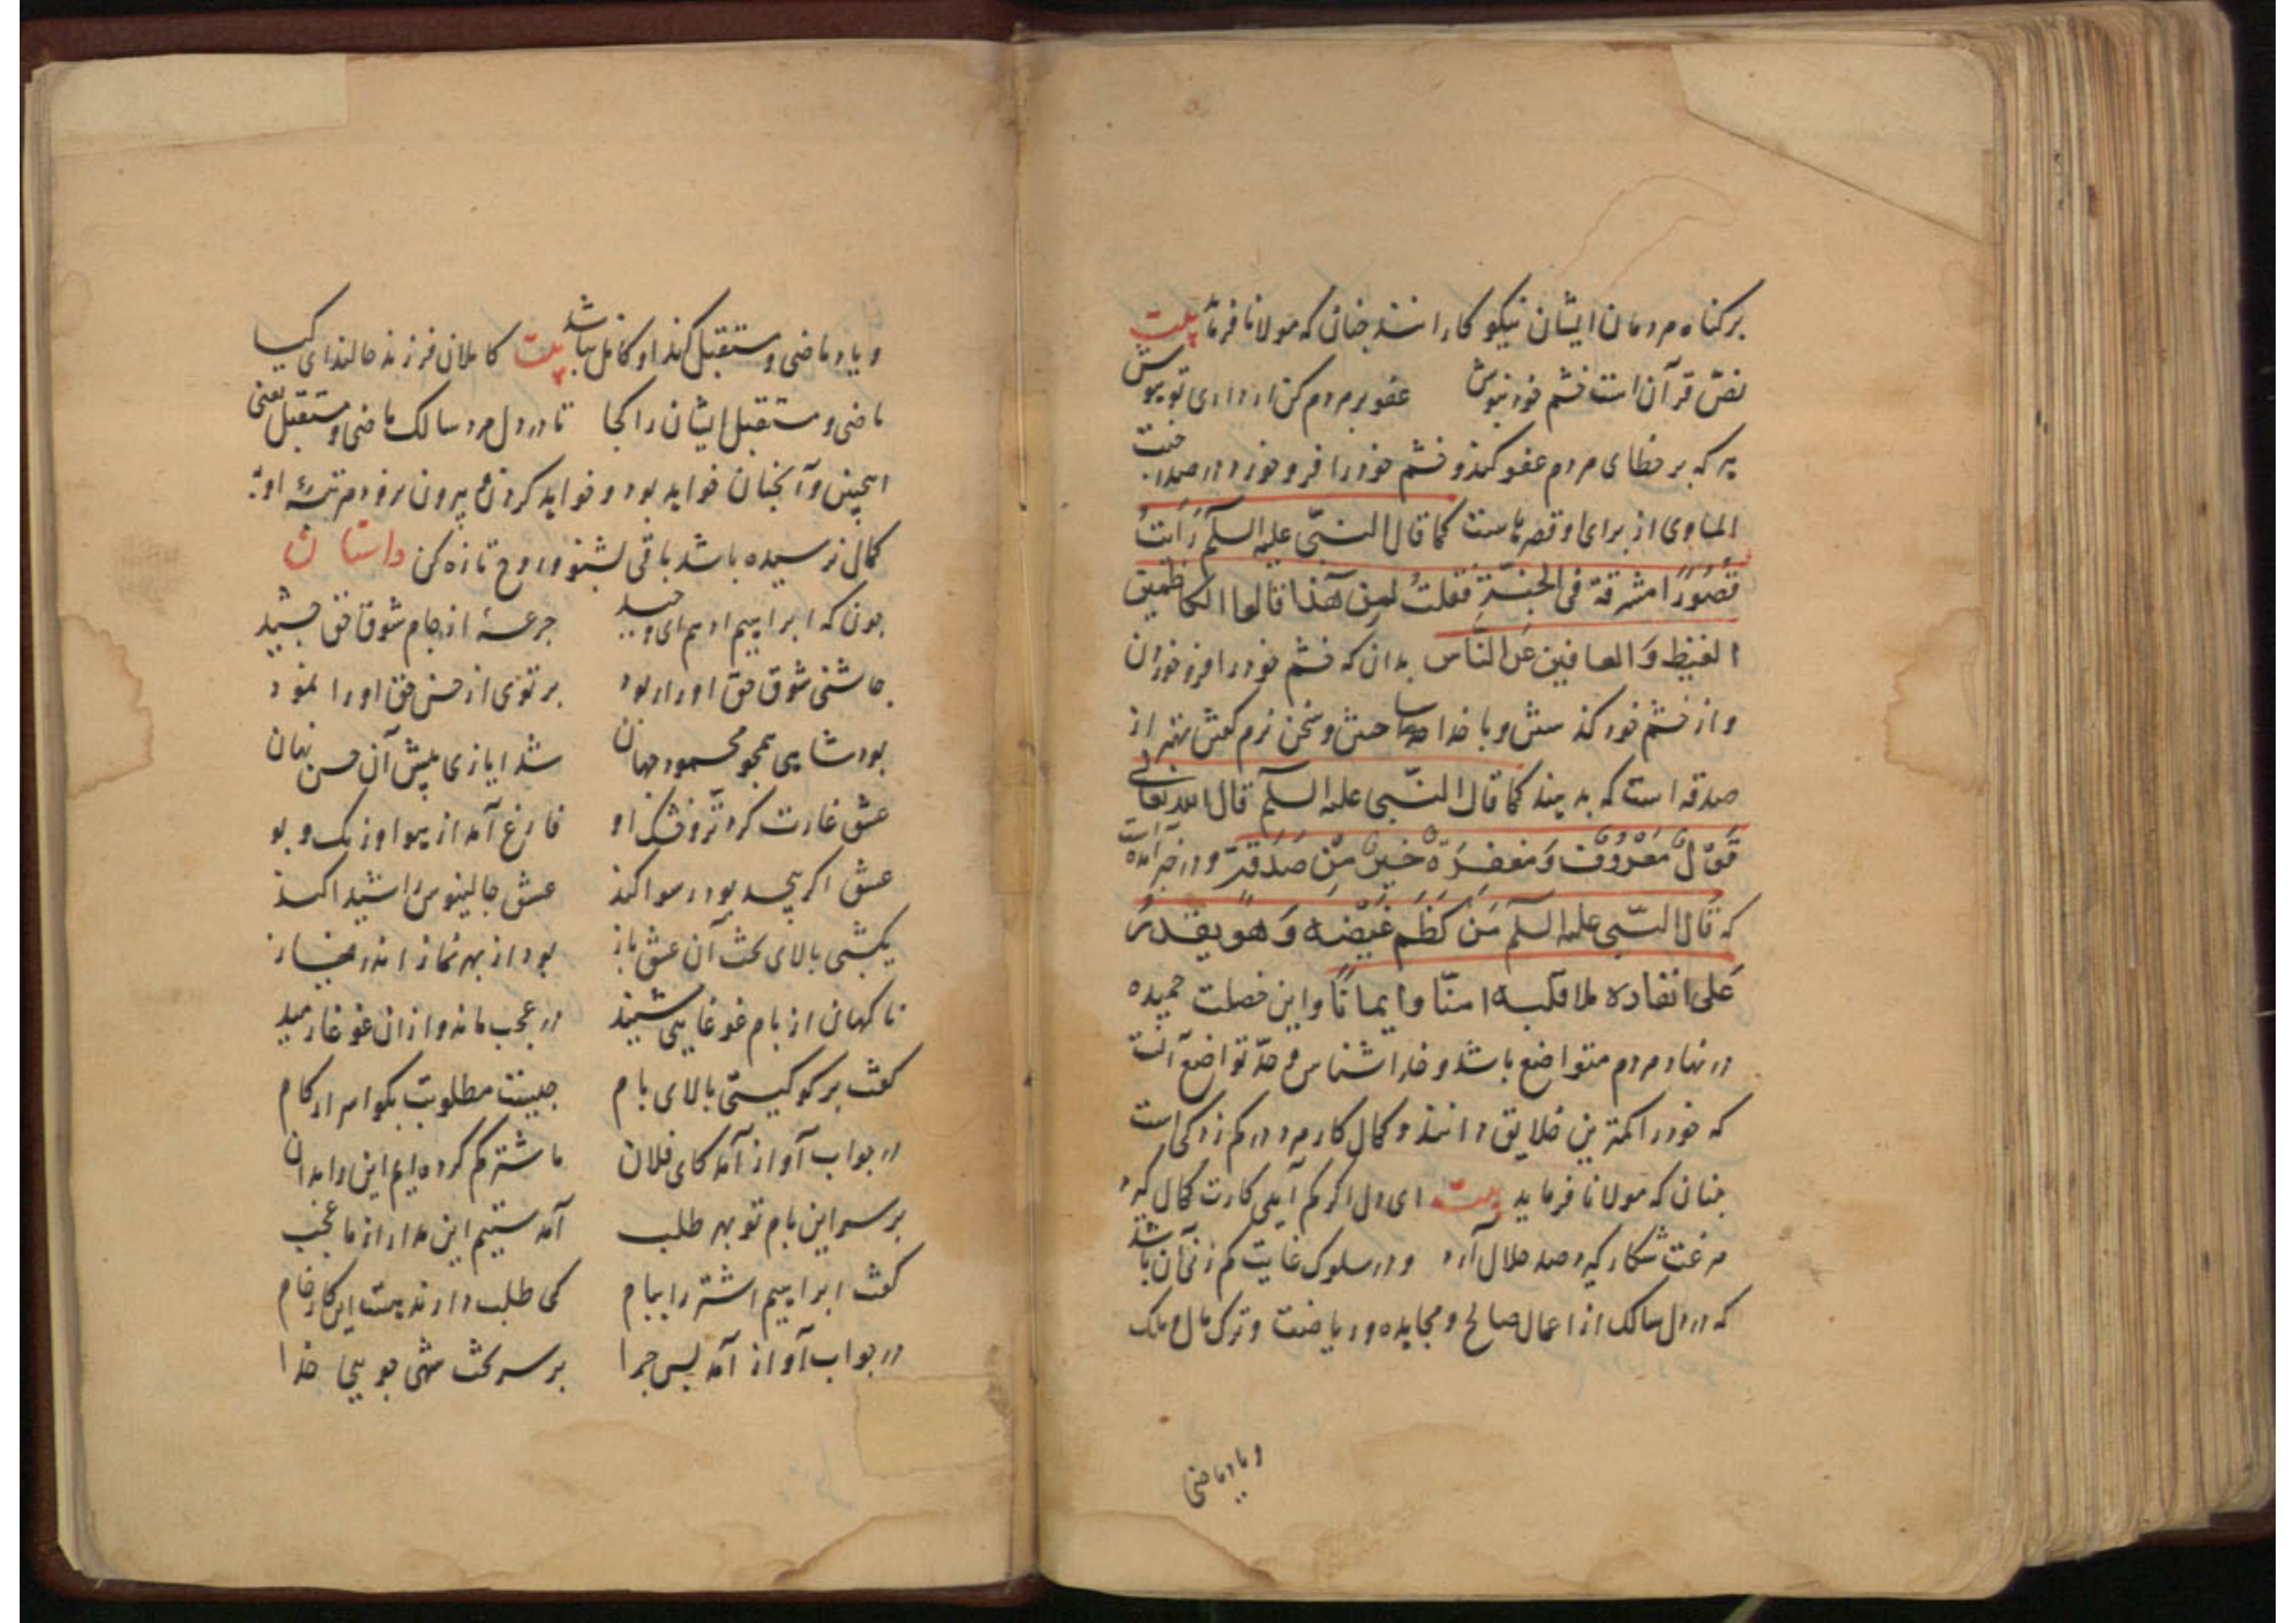 بر کناه مردمان ایشان نیکو کارانند چنانی که مولانا فرماید بیت
نصّ قرآن است خشم خود بنوش عفو بر مردم کن ار داری تو هوش
هر که بر خطای مردم عفو کند و خشم خود را فرو خورد در صدر جنت
الماوی از برای او قصرهاست کما قال النبّی علیه السلم رَایتُ
قصُورًا مشرقة فی الجنّة فقلتُ لمن هذا قالوا الکاظمین
الغیظ وَ العافین عَن النّاس بدان که خشم خود را فرو خوردن
و از خشم خود کذشتن و با خدا ساختن و سخن نرم کفتن بهتر از
صدقه است که بدهند کما قال النبّی علیه السلم قال الله تعالی
قَولٌ مَعْروُفٌ وَ مَغفِرَةٌ خَیرٌ مِنْ صَدَقةٍ و در خبر آمده است
که قال النبّی علیه السلم مَنْ کَظَمَ غَیْضهُ وَ هُوَ یقدرُ
عَلی انفاده ملا قلبه امنّا و ایمانًا و این خصلت حمیده
در نهاد مردم متواضع باشد و خدا شناس و حدّ تواضع آنست
که خود را کمترین خلایق دانند و کمال کار مرد در کم زدکی است
چنان که مولانا فرماید بیت ای دل اکر کم آیی کارت کمال کیرد
مرغت شکار کیرد صد حلال آرد و در سلوک غایت کم زنی آن باشد
که در دل سالک از اعمال صالح و مجاهده و ریاضت و ترک مال و ملک
و یاد ماضی
و یاد ماضی و مستقبل کند او کامل نباشد بیت کاملان فرزند حالند ای کیا
ماضی و مستقبل ایشان را کجا تا در دل مرد سالک ماضی و مستقبل یعنی
اینچنین و آنچنان خواهد بود و خواهد کردن بیرون نرود مرتبهٔ او به
کمال نرسیده باشد باقی بشنو و روح تازه کن داستان
چون که ابراهیم ادهم ای وحید جرعهٔ از جام شوق حق چشید
چاشنی شوق حق او را ربود پرتوی از حسن حق او را نمود
بود شاهی همچو محمود جهان شد ایازی پیش آن حسن نهان
عشق غارت کرد تر و خشک او فارغ آمد از هوا و رنک و بو
عشق اکر پیچد بود رسوا کند عشق جالینوس را شیدا کند
یکشبی بالای تخت آن عشق باز بود از بهر نماز اندر نیاز
ناکهان از بام غوغایی شنید در عجب ماند و از ان غوغا رمید
کفت بر کو کیستی بالای بام چیست مطلوبت بکو اسرار کام
در جواب آواز آمد کای فلان ما شتر کم کرده‌ایم این را بدان
بر سر این بام تو بهر طلب آمدستیم این مدار از ما عجب
کفت ابراهیم اشتر را ببام کی طلب دارند هست این کار خام
در جواب آواز آمد پس چرا بر سر تخت شهی جویی خدا